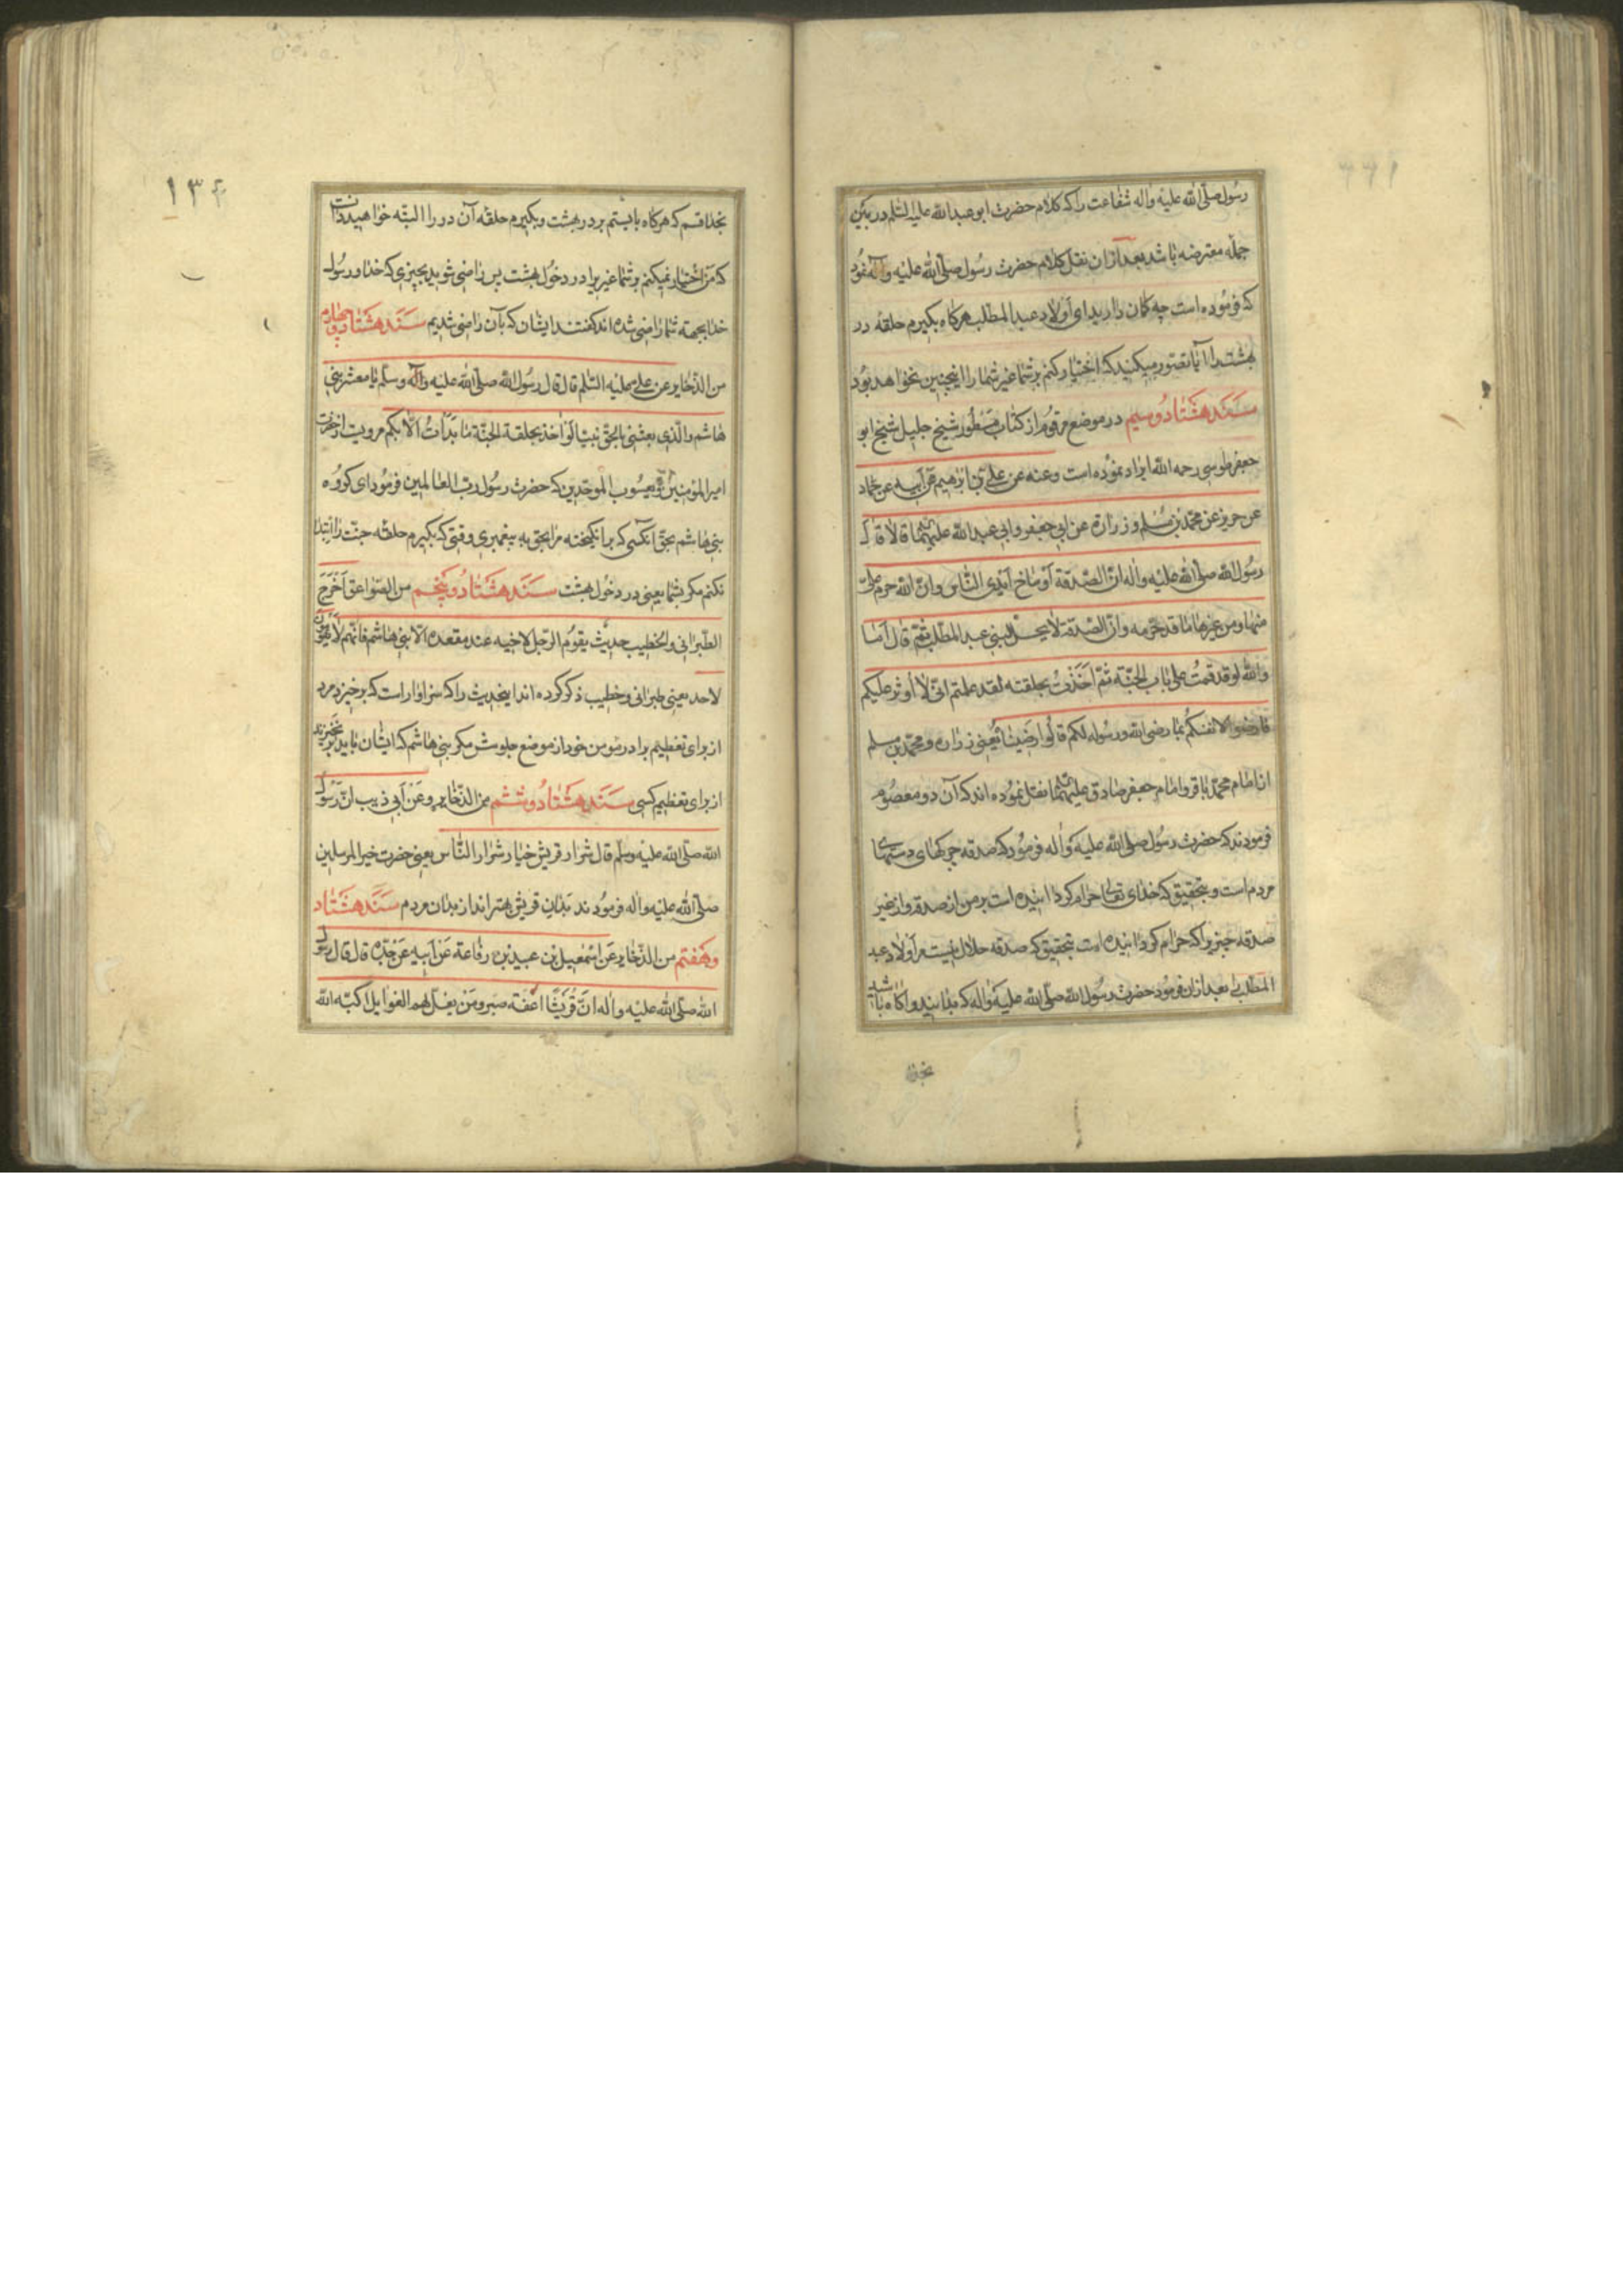 رسول صلّی اللّه علیه واله شفاعت را که کلام حضرت ابو عبد اللّه علیه السّلم در بین
جمله معترضه باشد بعد ازان نقل کلام حضرت رسول صلّی اللّه علیه وآله نمود
که فرموده است چه کمان دارید ای اولاد عبد المطّلب هرکاه بکیرم حلقه در
بهشت را آیا تصّور میکنید که اختیار کنم بر شما غیر شما را اینچنین نخواهد بود
سند هشتاد و سیم در موضع مرقوم از کتاب مسطور شیخ جلیل شیخ ابو
جعفر طوسی رحمه اللّه ایراد نموده است وعنه عن علی بن ابرهیم عن ابیه عن حماد
عن حریز عن محمّد بن مسلم و زرارة عن ابی جعفر وابی عبد اللّه علیهما قالا قال
رسول اللّه صلّی اللّه علیه واله انّ الصّدقة أوساخ أیدی النّاس وانّ اللّه حرم علیّ
منها ومن غیرها ما قد حرّمه وانّ الصّدقة لا یحلّ لبنی عبد المطّلب ثمّ قال أما
واللّه لو قد قمت علی باب الجنّة ثمّ أخذت بحلقته لقد علمتم انّی لا أوثر علیکم
فارضوا لانفسکم بما رضی اللّه ورسوله لکم قالوا رضینا یعنی زراره و محمّد بن مسلم
از امام محمّد باقر و امام جعفر صادق علیهما نقل نموده اند که آن دو معصوم
فرمودند که حضرت رسول صلّی اللّه علیه واله فرمود که صدقه چرکهای دستهای
مردم است و بتحقیق که خدای تعالی حرام کردانیده است بر من از صدقه و از غیر
صدقه چیزیرا که حرام کردانیده است بتحقیق که صدقه حلال نیست مر اولاد عبد
المطّلب را بعد ازان فرمود حضرت رسول اللّه صلّی اللّه علیه واله که بدانید و آکاه باشید
بخدا
۱۳۴
بخدا قسم که هرکاه بایستم بر در بهشت و بکیرم حلقه آن در را البتّه خواهید دانست
که من اختیار نمیکنم بر شما غیریرا در دخول بهشت پس راضی شوید بچیزی که خدا و رسول
خدا بجهته شما راضی شده اند کفتند ایشان که بآن راضی شدیم سند هشتاد و چهارم
من الذّخایر عن علی علیه السّلم قال قال رسول اللّه صلّی اللّه علیه وآله وسلّم یا معشر بنی
هاشم والّذی بعثنی بالحقّ نبیّا لو اخذ بحلقة الجنّة ما بدأت الّا بکم مرویست از حضرت
امیر المؤمنین و یعسوب الموحّدین که حضرت رسول ربّ العالمین فرمود ای کروه
بنی هاشم بحقّ آنکسی که برانکیخته مرا بحق به پیغمبری وقتی که بکیرم حلقه جنّت را ابتدا
نکنم مکر بشما یعنی در دخول بهشت سند هشتاد و پنجم من الصّواعق أخرج
الطّبرانی والخطیب حدیث یقوم الرّجل لاخیه عند مقعده الّا بنی هاشم فانّهم لا یقومون
لاحد یعنی طبرانی و خطیب ذکر کرده اند اینحدیث را که سزاوار است که برخیزد مرد
از برای تعظیم برادر مؤمن خود از موضع جلوسش مکر بنی هاشم که ایشان نباید برخیزند
از برای تعظیم کسی سند هشتاد و ششم من الذّخایر وعن أبی ذیب انّ رسول
اللّه صلّی اللّه علیه وسلّم قال شرار قریش خیار شرار النّاس یعنی حضرت خیر المرسلین
صلّی اللّه علیه واله فرمودند بدان قریش بهتر اند از بدان مردم سند هشتاد
و هفتم من الذّخایر عن اسمعیل بن عبید بن رفاعة عن ابیه عن جدّه قال قال رسول
اللّه صلّی اللّه علیه واله انّ قریشا اعفة صبر ومن یغل لهم الغوایل اکبّه اللّه